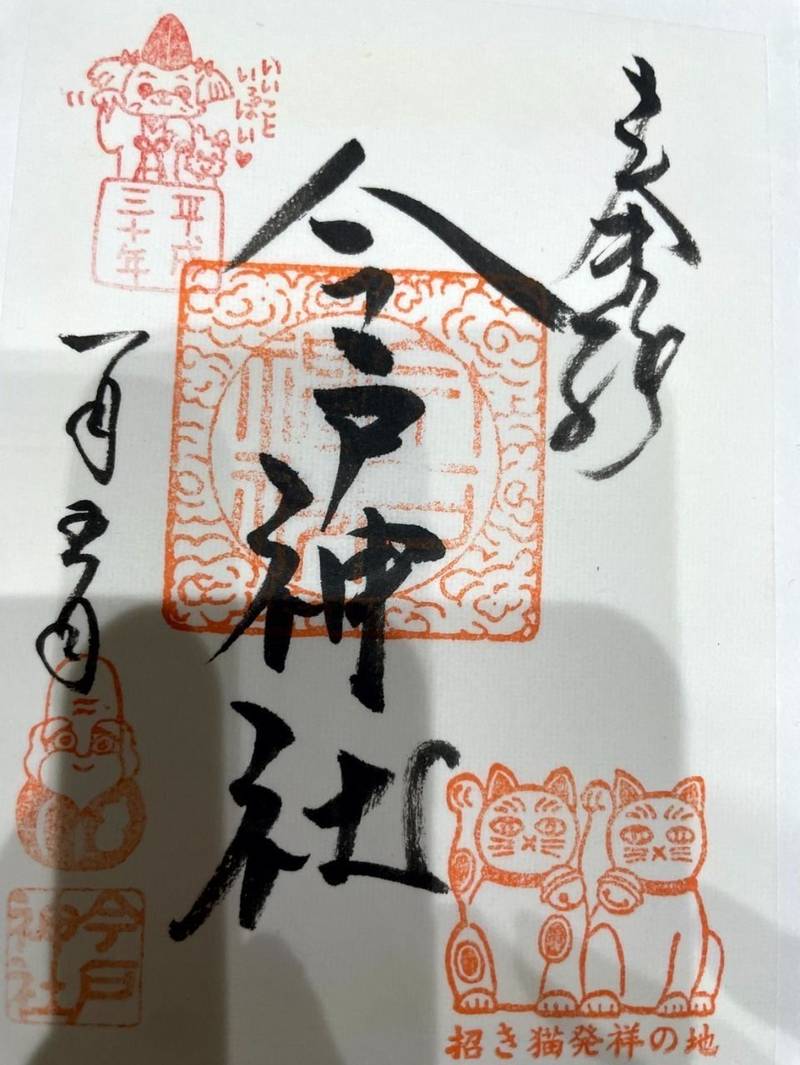 今戸神社
いいこと
いっぱい♥
平成
三十年
一月五日
今戸
神社
招き猫発祥の地